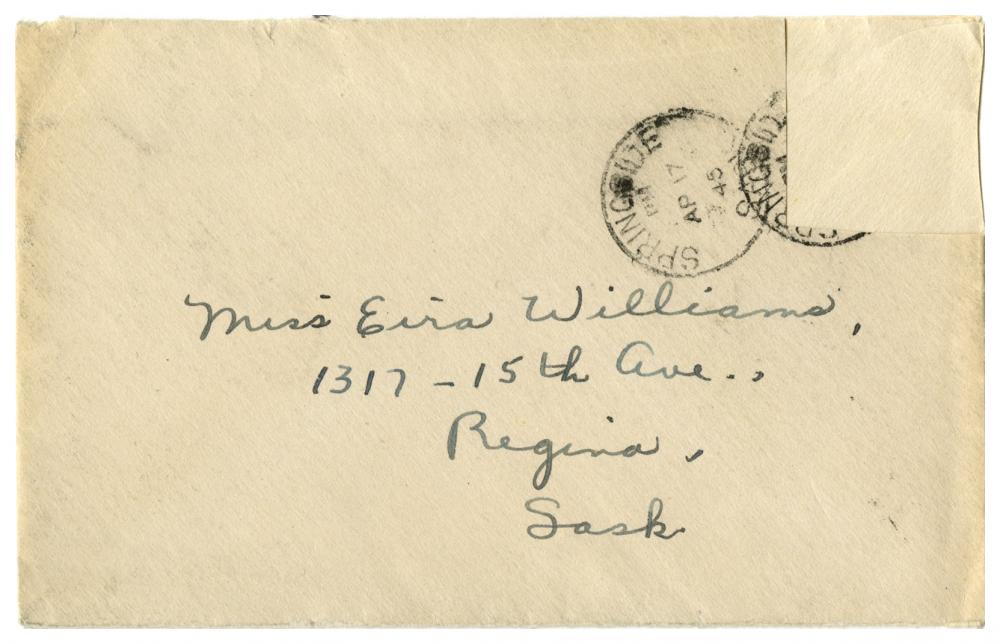 SPRINGSIDE
PM
AP 17
45
SPRINGSIDE
Miss Eira Williams,
1317 - 15th Ave.,
Regina,
Sask.